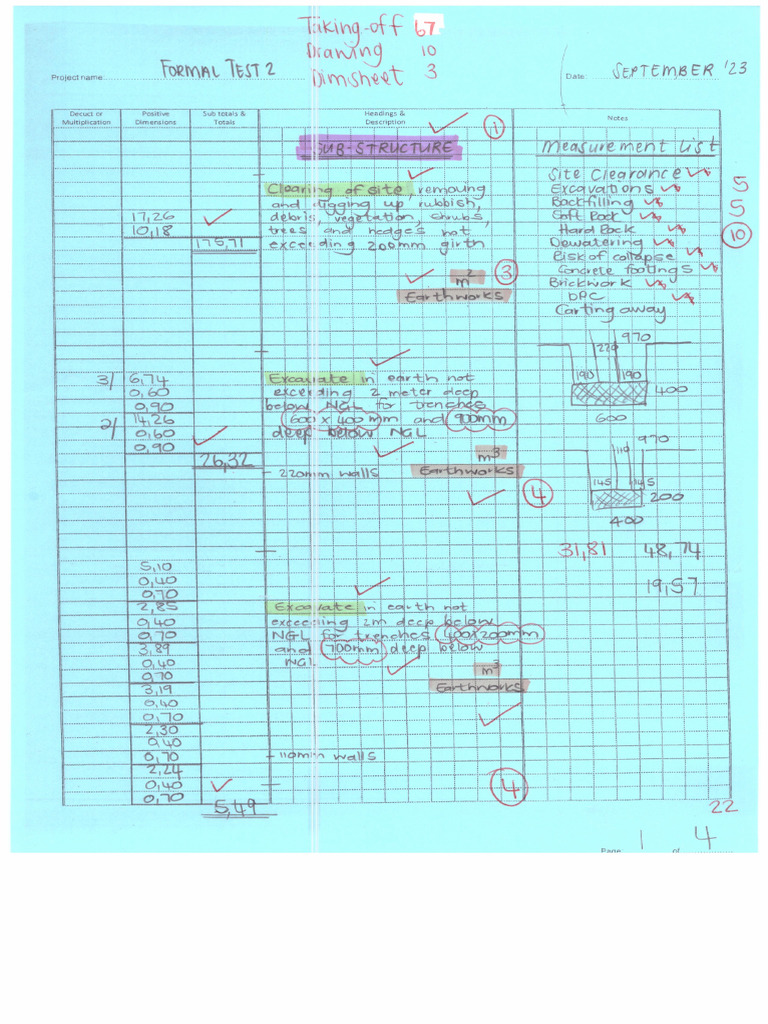 Taking-off 67
Drawing 10
Dimsheet 3
Project name: FORMAL TEST 2
Date: SEPTEMBER '23
Deduct or Multiplication
Positive Dimensions
Sub totals & Totals
Headings & Description
Notes
1
SUB-STRUCTURE
Measurement List
Site Clearance
Excavations
Backfilling
Soft Rock
Hard Rock
Dewatering
Risk of collapse
Concrete footings
Brickwork
DPC
Carting away
5
5
10
Clearing of site, removing
and digging up rubbish,
debris, vegetation, shrubs,
trees and hedges not
exceeding 200mm girth
17,26
10,18
175,71
m²
3
Earthworks
970
220
190 190
400
600
3/ 6,74
0,60
0,90
2/ 14,26
0,60
0,90
26,32
Excavate in earth not
exceeding 2 meter deep
below NGL for trenches
600 x 400mm and 900mm
deep below NGL
m³
- 220mm walls
Earthworks
4
970
110
145 145
200
400
31,81 48,74
19,57
5,10
0,40
0,70
2,85
0,40
0,70
3,89
0,40
0,70
3,19
0,40
0,70
2,30
0,40
0,70
2,24
0,40
0,70
5,49
Excavate in earth not
exceeding 2m deep below
NGL for trenches 400x200mm
and 700mm deep below
NGL
m³
Earthworks
- 110mm walls
4
22
Page 1 of 4